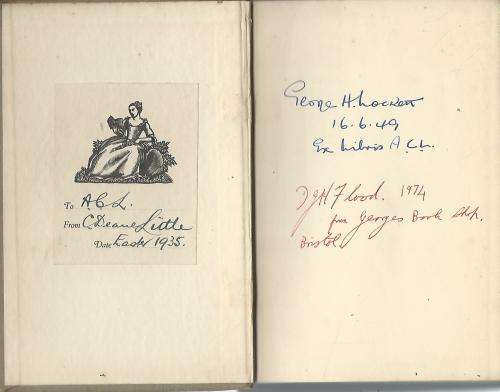 To A.C.L.
From C. Deane Little
Date Easter 1935.
George H. Lockett
16.6.49
Ex Libris A.C.L.
Flood. 1974
from Georges Book Shop.
Bristol